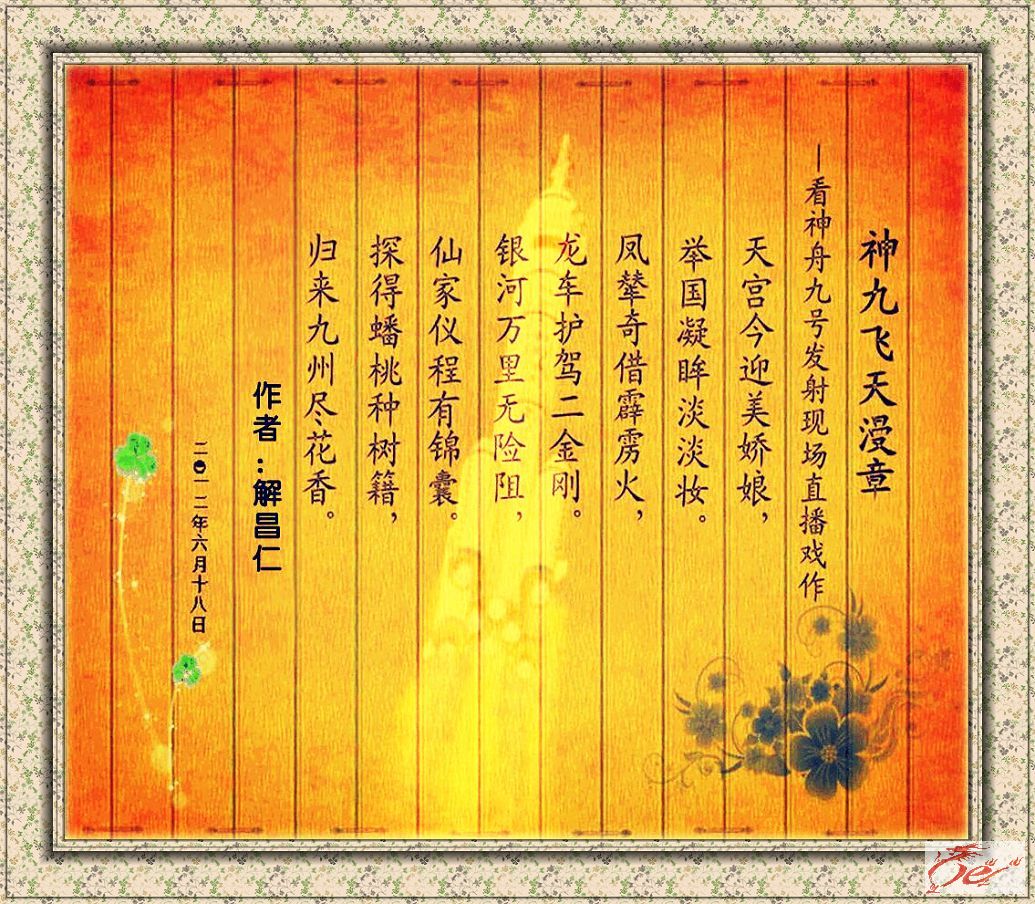 神九飞天漫章
—看神舟九号发射现场直播戏作
天宫今迎美娇娘，
举国凝眸淡淡妆。
凤辇奇借霹雳火，
龙车护驾二金刚。
银河万里无险阻，
仙家仪程有锦囊。
探得蟠桃种树籍，
归来九州尽花香。
作者：解昌仁
二〇一二年六月十八日